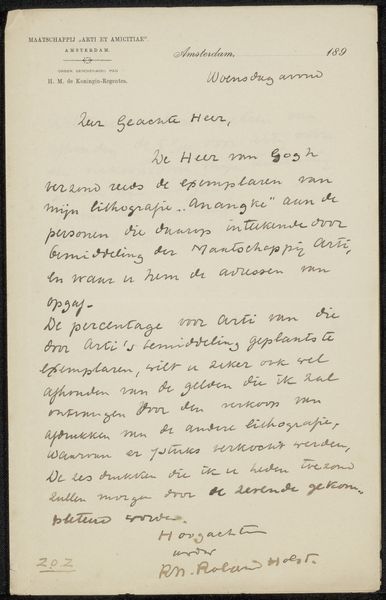 MAATSCHAPPIJ „ARTI ET AMICITIAE"
AMSTERDAM.
ONDER BESCHERMING VAN
H. M. de Koningin-Regentes.
Amsterdam, 189
Woensdagavond
Zeer Geachte Heer,
De Heer van Gogh
verzond reeds de exemplaren van
mijn lithografie „Anangkè" aan de
personen die daarop intekende door
bemiddeling der Maatschappij Arti,
en waar u hem de adressen van
opgaf.
De percentage voor Arti van die
door Arti's bemiddeling geplaatste
exemplaren, wilt u zeker ook wel
afhouden van de gelden die ik zal
ontvangen door den verkoop van
afdrukken van de andere lithografie,
waarvan er stuks verkocht werden,
De zes drukken die ik u heden toezond
zullen morgen door de zevende gekom-
pleteerd worden.
Hoogachtend
R.N. Roland Holst.
202